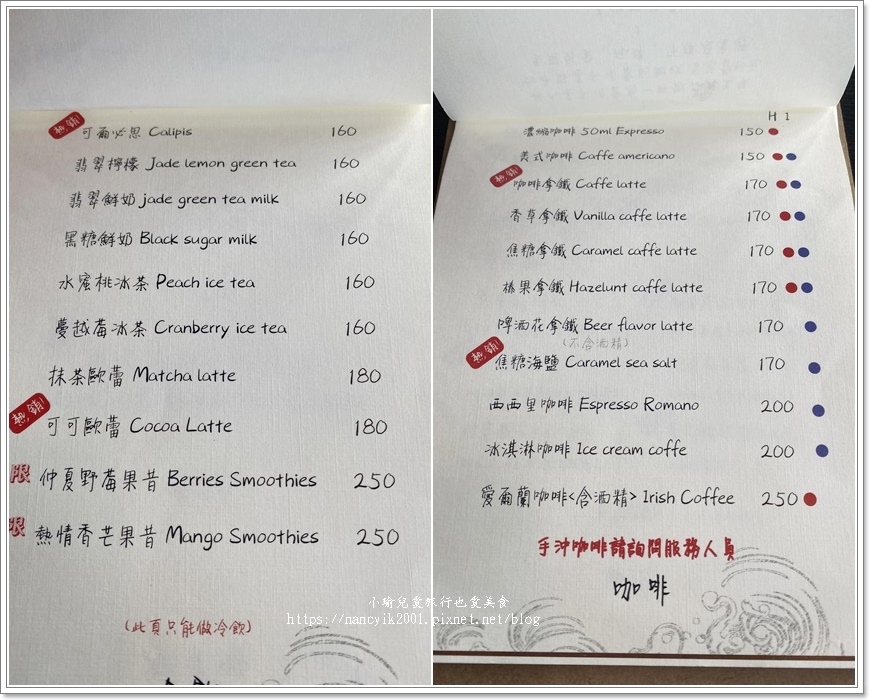 熱銷!
可爾必思 Calipis 160
翡翠檸檬 Jade lemon green tea 160
翡翠鮮奶 jade green tea milk 160
黑糖鮮奶 Black sugar milk 160
水蜜桃冰茶 Peach ice tea 160
蔓越莓冰茶 Cranberry ice tea 160
抹茶歐蕾 Matcha latte 180
熱銷!
可可歐蕾 Cocoa Latte 180
限 仲夏野莓果昔 Berries Smoothies 250
限 熱情香芒果昔 Mango Smoothies 250
(此頁只能做冷飲)
H I
濃縮咖啡 50ml Espresso 150
美式咖啡 Caffe americano 150
熱銷!
咖啡拿鐵 Caffe latte 170
香草拿鐵 Vanilla caffe latte 170
焦糖拿鐵 Caramel caffe latte 170
榛果拿鐵 Hazelunt caffe latte 170
啤酒花拿鐵 Beer flavor latte 170
(不含酒精)
熱銷!
焦糖海鹽 Caramel sea salt 170
西西里咖啡 Espresso Romano 200
冰淇淋咖啡 Ice cream coffe 200
愛爾蘭咖啡<含酒精> Irish Coffee 250
手沖咖啡請詢問服務人員
咖啡
小瑜兒愛旅行也愛美食
https://nancyik2001.pixnet.net/blog